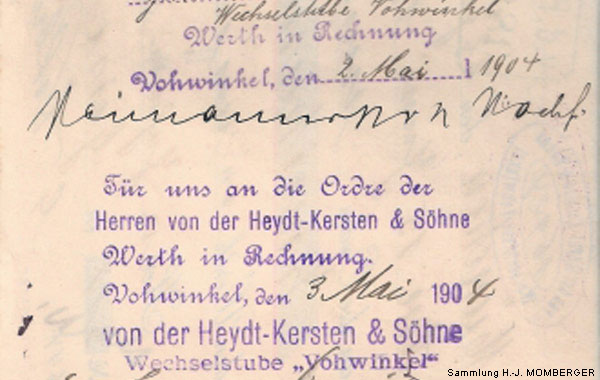 Wechselstube Vohwinkel
Werth in Rechnung
Vohwinkel, den 2. Mai 1904
Nachf.
Für uns an die Ordre der
Herren von der Heydt-Kersten & Söhne
Werth in Rechnung.
Vohwinkel, den 3 Mai 1904
von der Heydt-Kersten & Söhne
Wechselstube „Vohwinkel“
Sammlung H.-J. MOMBERGER